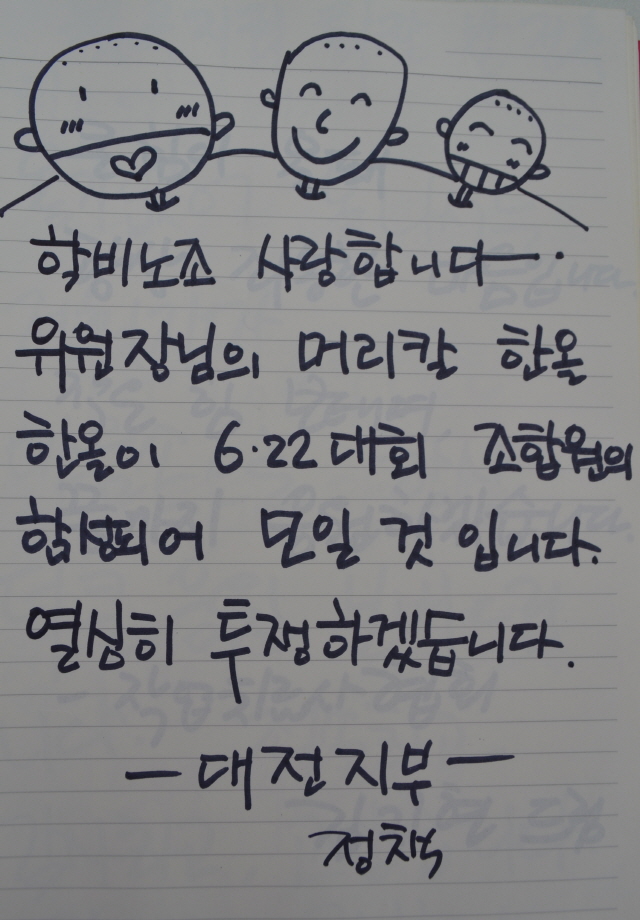 학비노조 사랑합니다ㅡ·
위원장님의 머리칼 한올
한올이 6·22대회 조합원의
함성되어 모일 것 입니다.
열심히 투쟁하겠듭니다.
- 대전지부 -
정책